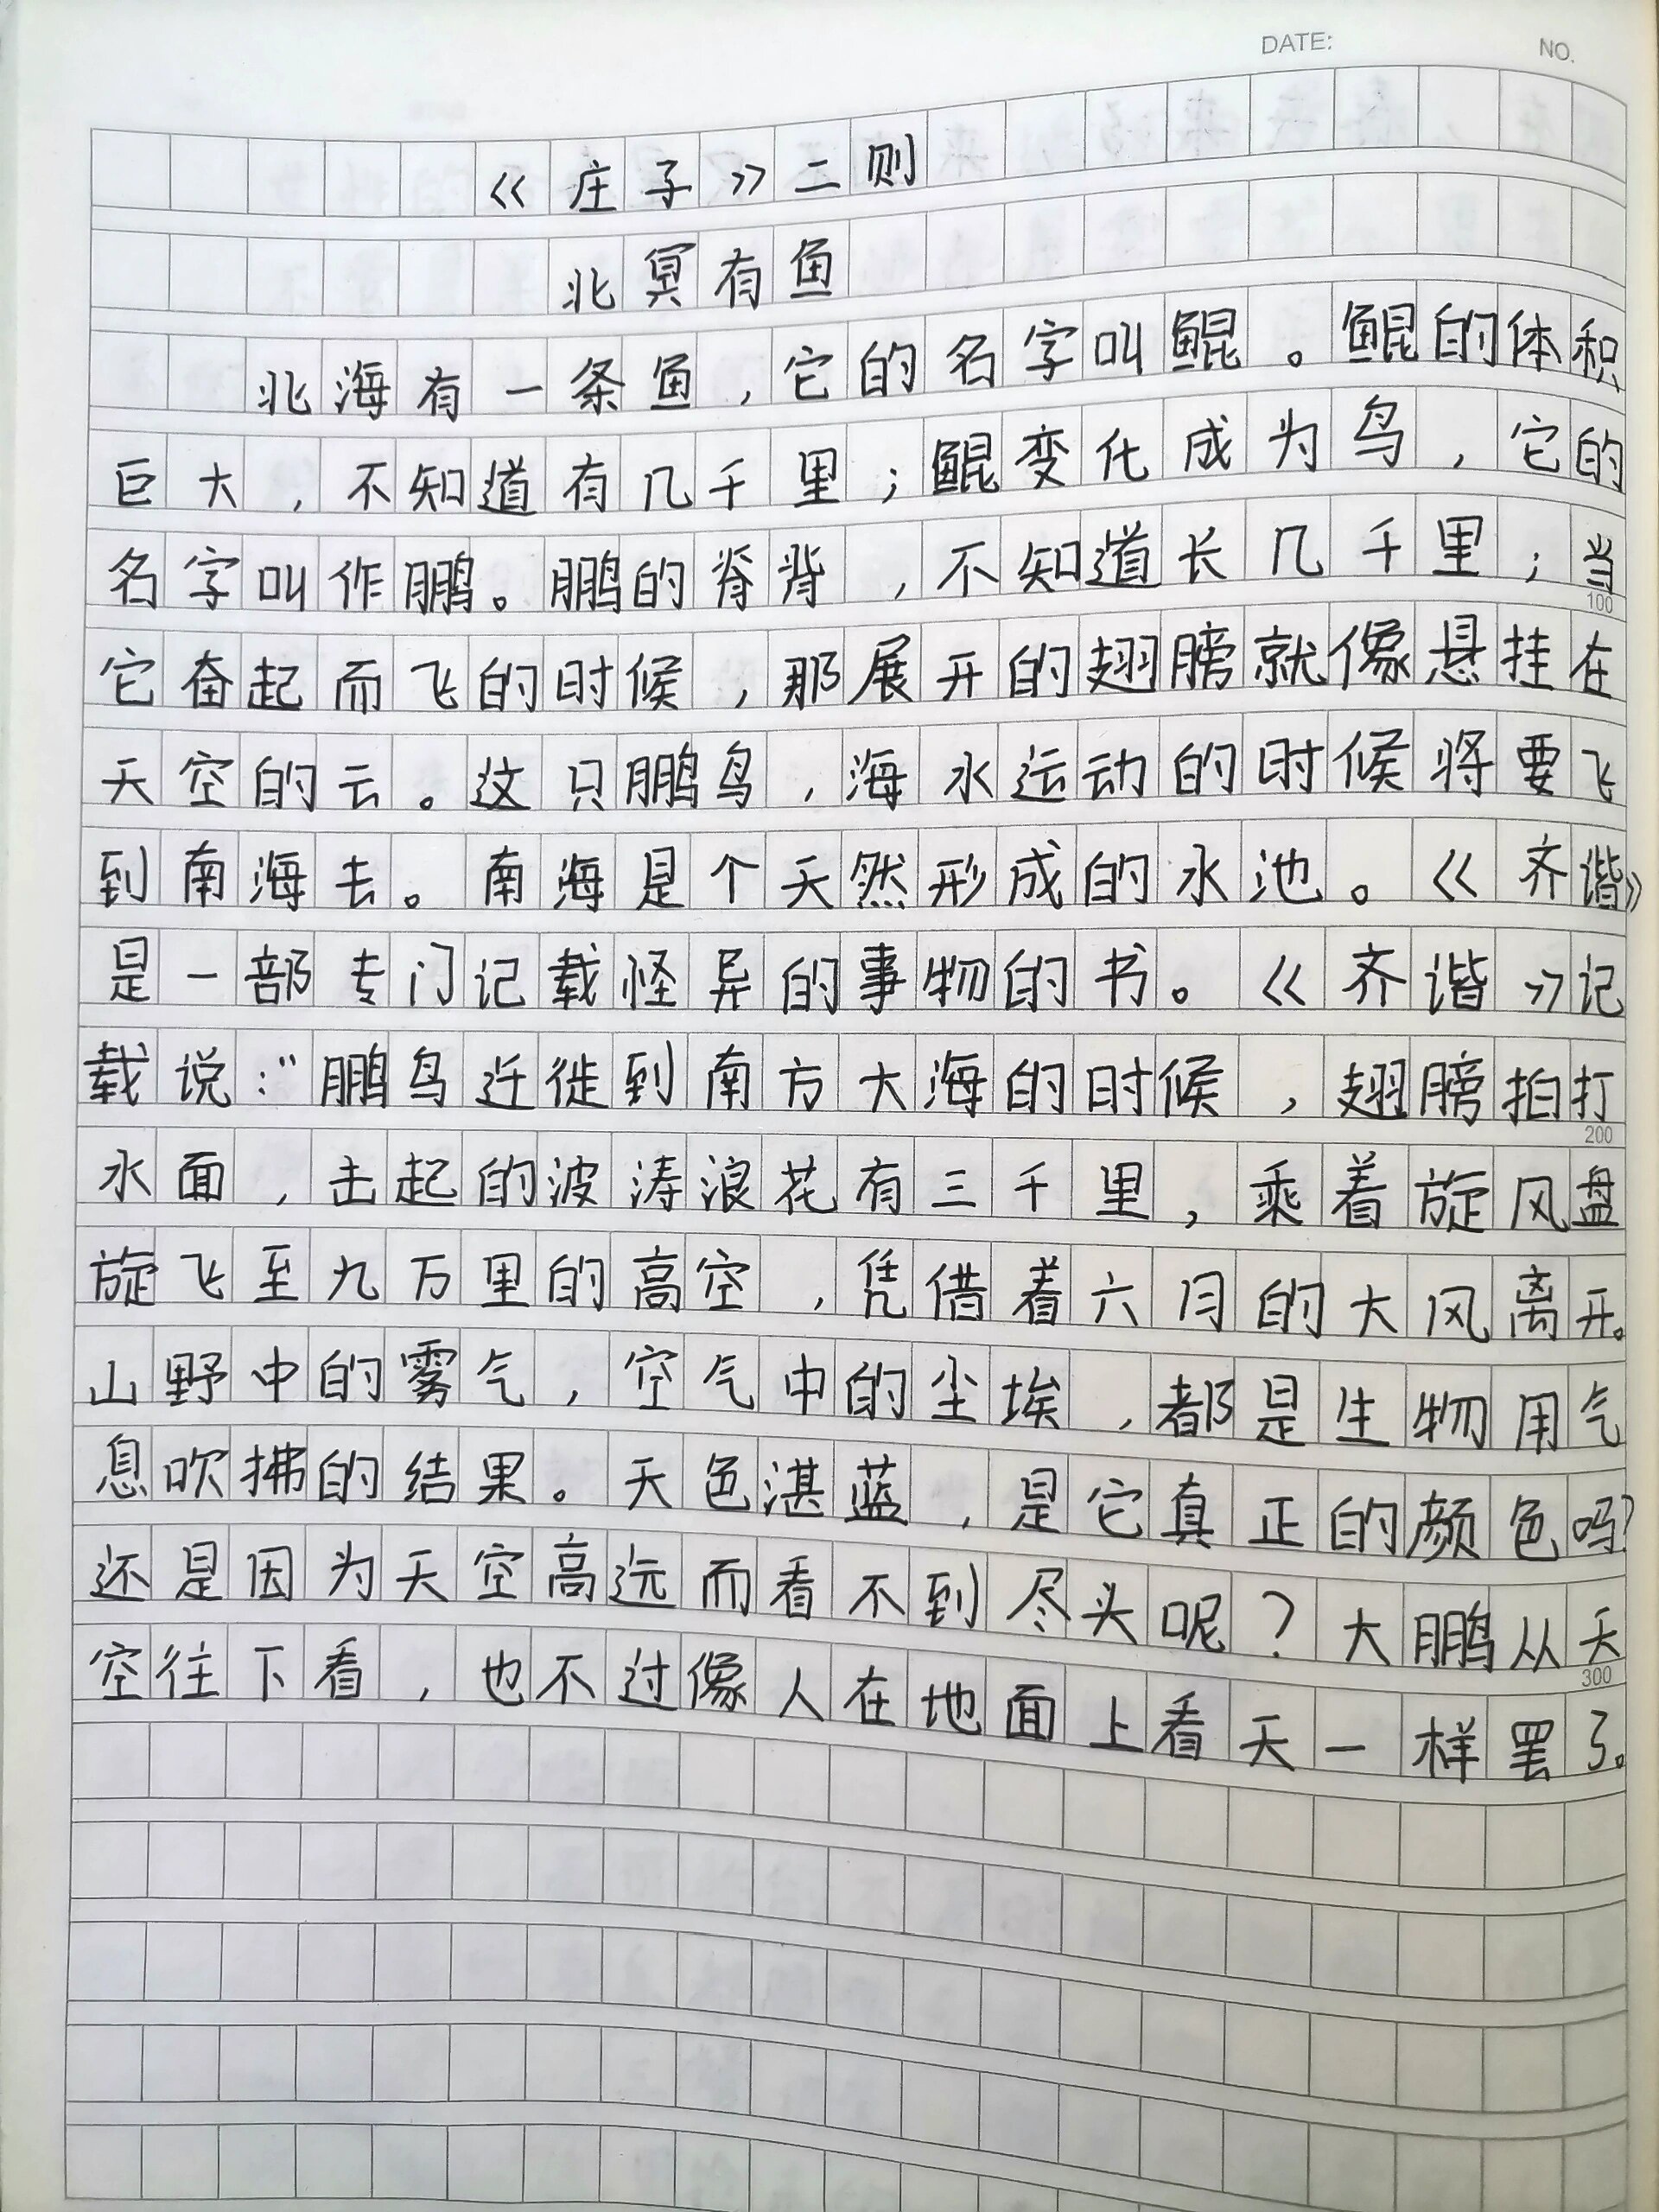 DATE: NO.
《庄子》二则
北冥有鱼
北海有一条鱼，它的名字叫鲲。鲲的体积
巨大，不知道有几千里；鲲变化成为鸟，它的
名字叫作鹏。鹏的脊背，不知道长几千里；当
100
它奋起而飞的时候，那展开的翅膀就像悬挂在
天空的云。这只鹏鸟，海水运动的时候将要飞
到南海去。南海是个天然形成的水池。《齐谐》
是一部专门记载怪异的事物的书。《齐谐》记
载说："鹏鸟迁徙到南方大海的时候，翅膀拍打
200
水面，击起的波涛浪花有三千里，乘着旋风盘
旋飞至九万里的高空，凭借着六月的大风离开。
山野中的雾气，空气中的尘埃，都是生物用气
息吹拂的结果。天色湛蓝，是它真正的颜色吗？
还是因为天空高远而看不到尽头呢？大鹏从天
300
空往下看，也不过像人在地面上看天一样罢了。